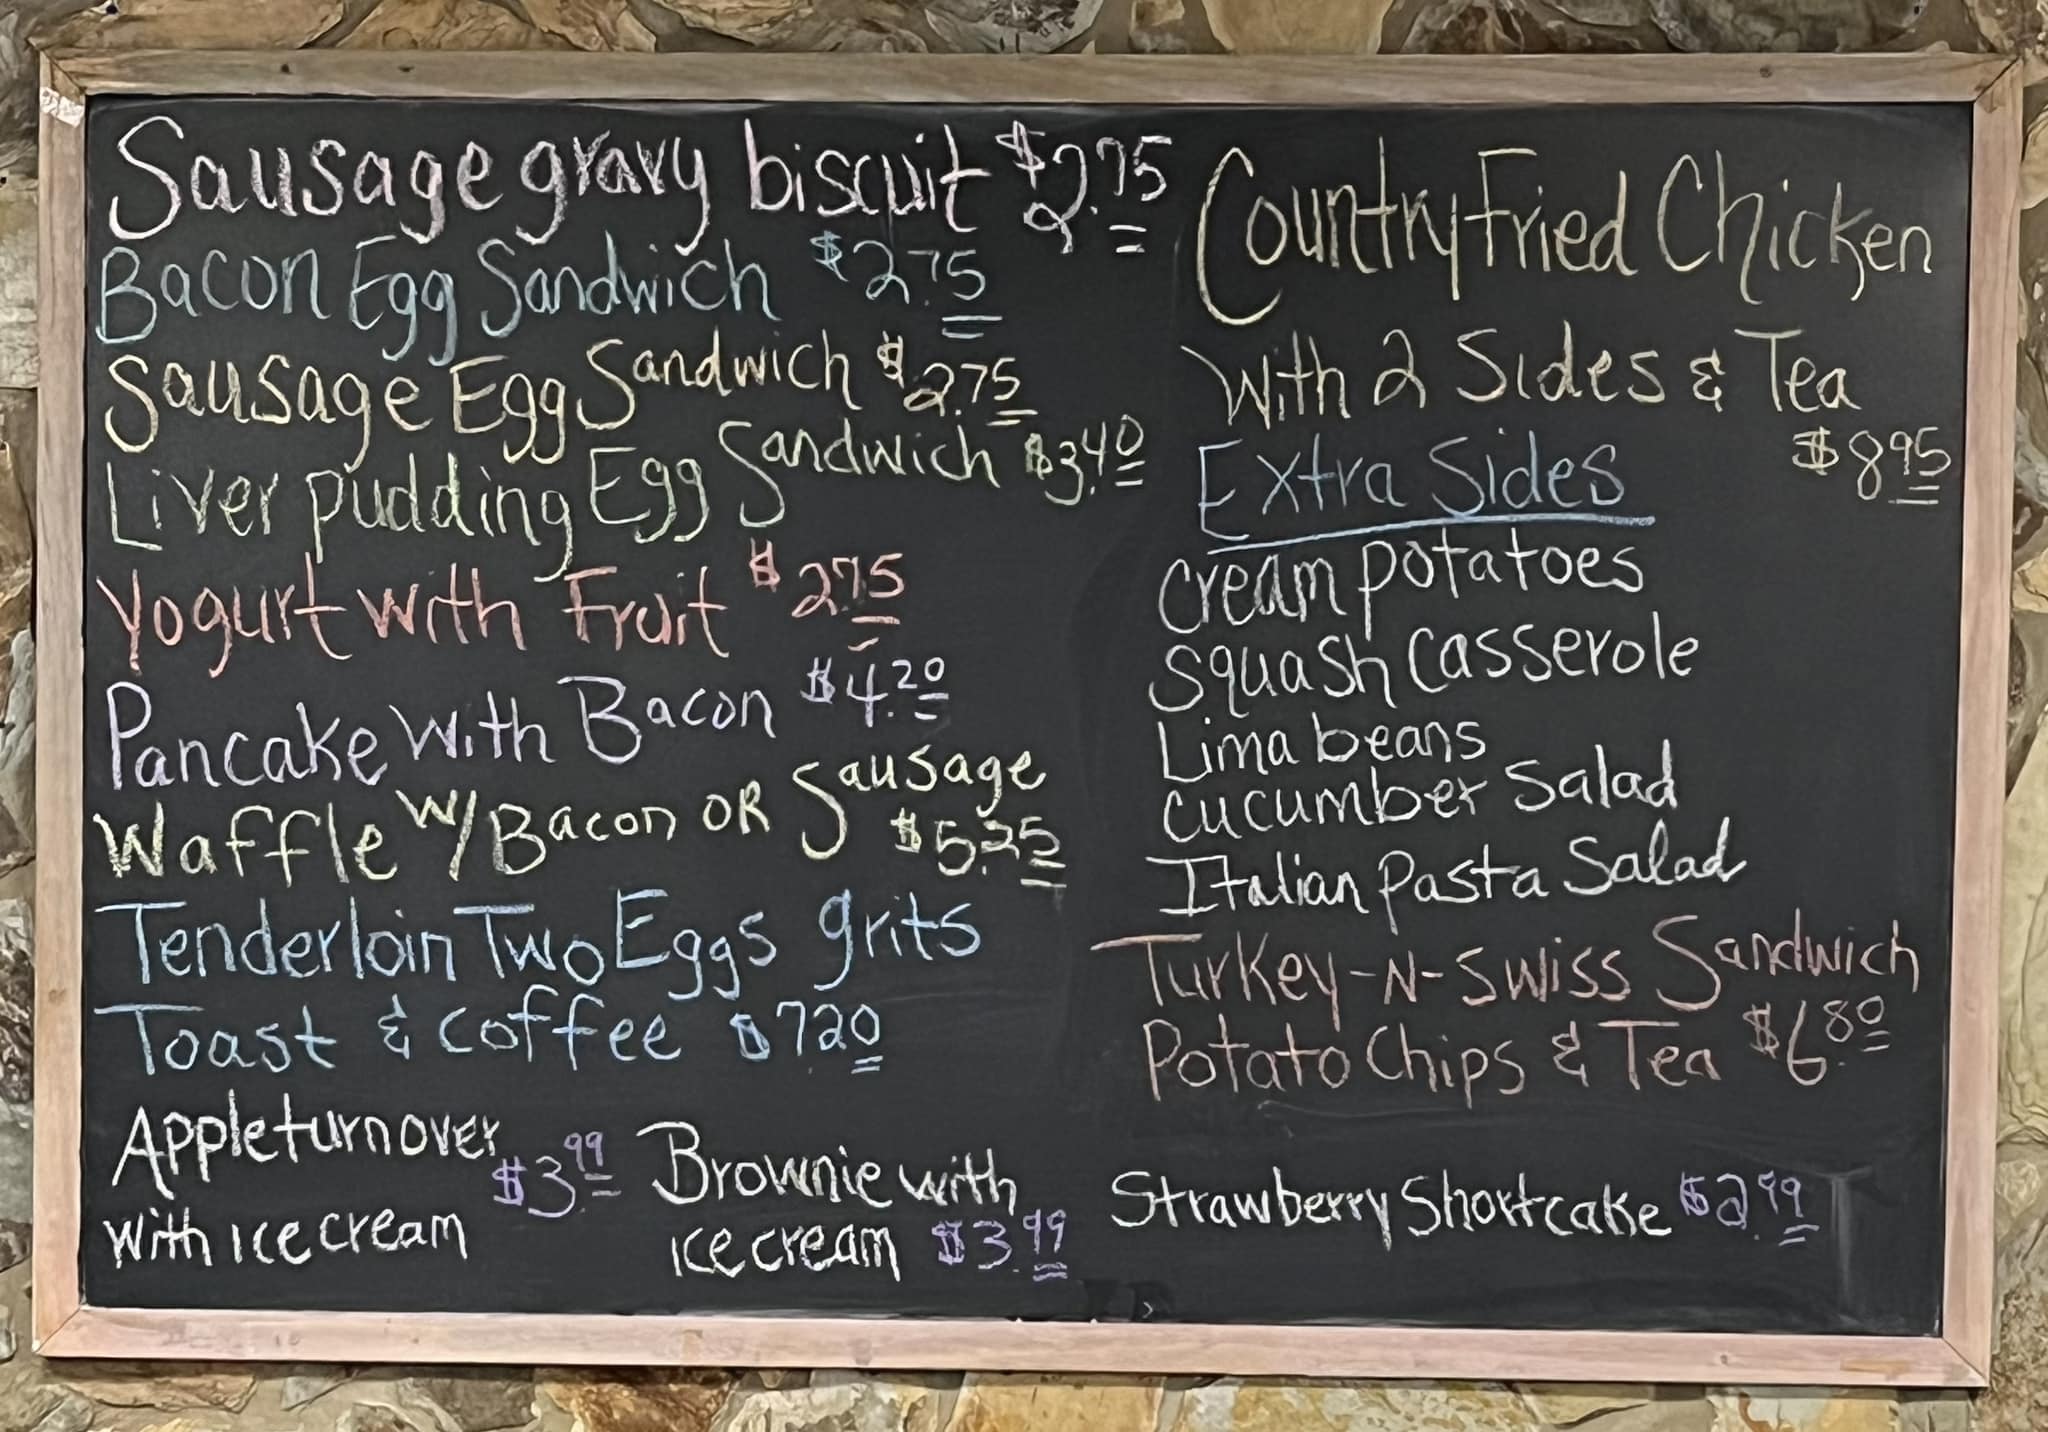 Sausage gravy biscuit $2.75
Bacon Egg Sandwich $2.75
Sausage Egg Sandwich $2.75
Liver pudding Egg Sandwich $3.40
Yogurt with Fruit $2.75
Pancake With Bacon $4.20
Waffle w/Bacon OR Sausage
$5.25
Tenderloin Two Eggs grits
Toast & coffee $7.20
Apple turnover
with ice cream $3.99
Brownie with
ice cream $3.99
Country Fried Chicken
With 2 Sides & Tea
$8.95
Extra Sides
cream potatoes
squash casserole
Lima beans
cucumber Salad
Italian Pasta Salad
Turkey-N-Swiss Sandwich
Potato Chips & Tea $6.80
Strawberry Shortcake $2.99